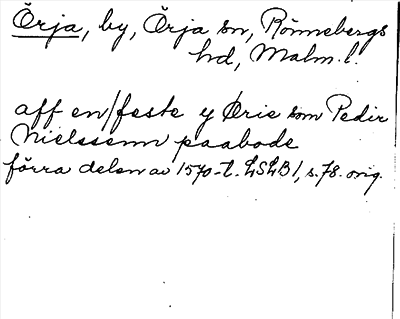 Örja, by, Örja sn, Rönnebergs
hd, Malm. l.
aff en/feste y Ørie som Pedir
Nielssenn paabode
förra delen av 1570-t. LSLB1, s. 78. orig.